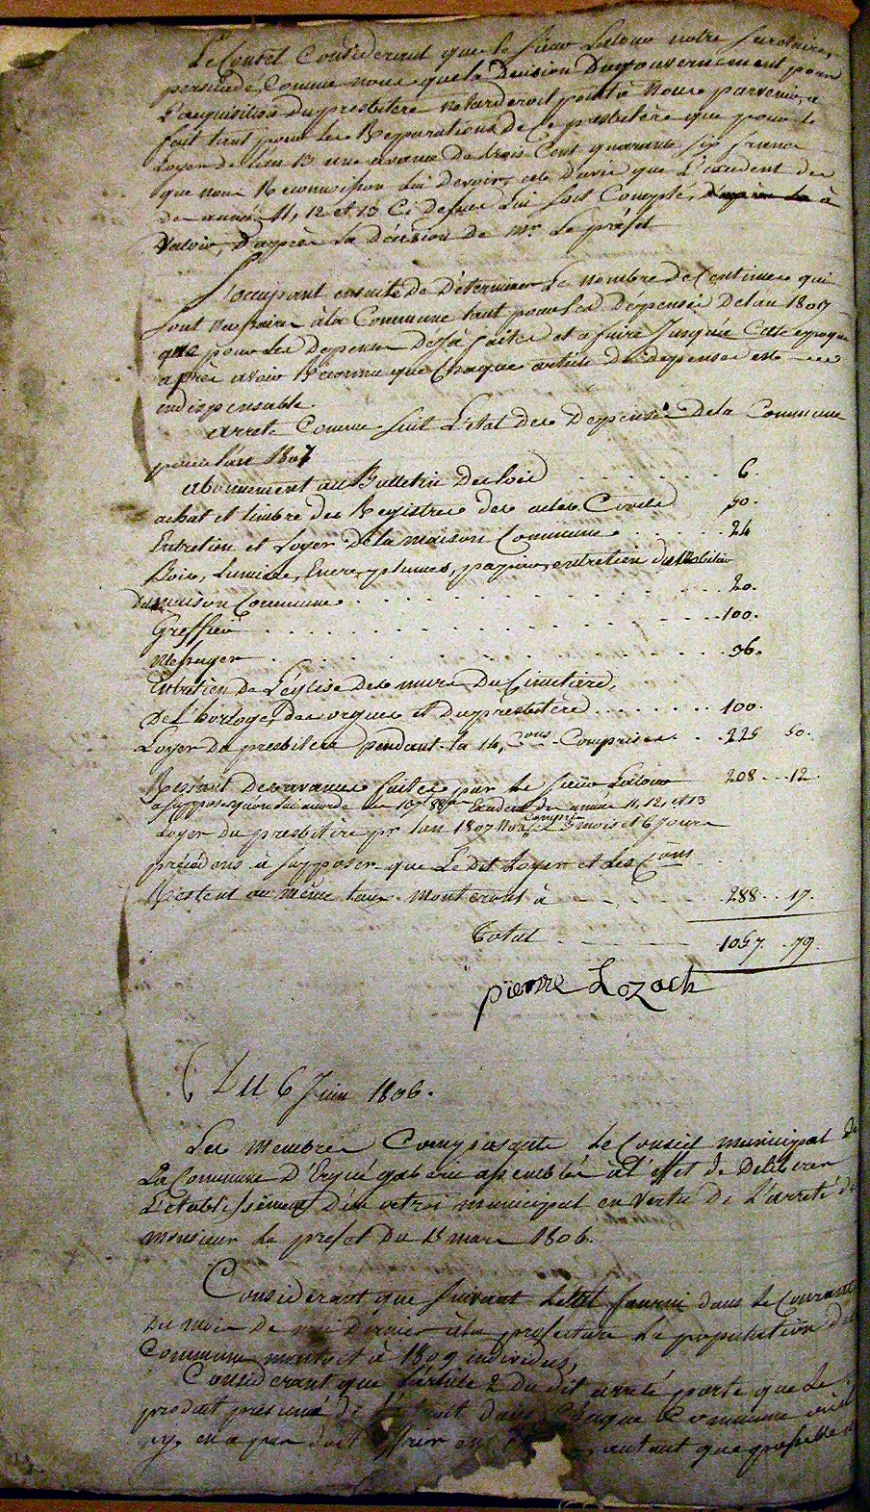 Le Conseil Considerant que le sieur Salaun notre secretaire,
persuadé, Comme nous que la Decision Du gouvernement pour
l'acquisition du presbitere ne tarderoit point à Nous parvenir, a
fait tant pour les Reparations de Ce presbitère que pour le
Loyer de l'an 13 une avance De trois Cent quarante six francs
que nous Reconnoisson Lui Devoir, est D'avis que L'excedent des
des années 11, 12 et 13 Ci Dessus Lui soit Compté, à
Valoir, D'après La Décision de Mr. Le préfet
S'occupant ensuite de Déterminer Le Nombre De Centimes qui
sont necessaires à la Commune tant pour les Dépenses De l'an 1807
que pour les Depenses Déjà faites et a faire Jusqu'a Cette epoque
après avoir Reconnu que Chaque article de depenses est
indispensable.
arrete Comme suit L'etat des Depenses De la Commune
pour l'an 1807
abonnement au Bulletin Des Lois 6.
achat et timbre des Registres des actes Civils 50.
Entretien et Loyer De la maison Commune 24
Bois, Lumière, Encre, plumes, papier, entretien du Mobilier
De maison Commune 20.
Greffier 100.
Messager 36.
Entretien De L'église Des murs Du Cimetière,
De l'horloge, des orgues et Du presbitère 100.
Loyer Du presbitere pendant la 14, Cons Comprises 225 50.
Restant Des avances faites par le sieur Salaun 208 12.
a supposer qu'on lui accorde les Excedens des années 11, 12, et 13
Loyer du presbitère pr l'an 1807 Non Compris les 3 mois et 6 Jours
précédens à supposer que Le Dit Loyer et les Cons
Restent au même taux Monteront à 288 17.
Total 1057. 79.
pierre Lozach
Du 6 Juin 1806.
Les Membres Composants le Conseil municipal De
La Commune D'Ergué gaberic assemblés à l'effet de Deliberer
L'etablissement D'un octroi municipal en Vertu De L'arreté de
Monsieur Le prefet Du 15 mars 1806.
Considerant que suivant L'etat fourni dans le Courant
Du Mois De mai Dernier à la prefecture La population de
Commune montoit à 1809 individus,
Considerant que l'article 2 du dit arreté porte que Le
produit présumé de l'octroi dans Chaque Commune
autant que possible